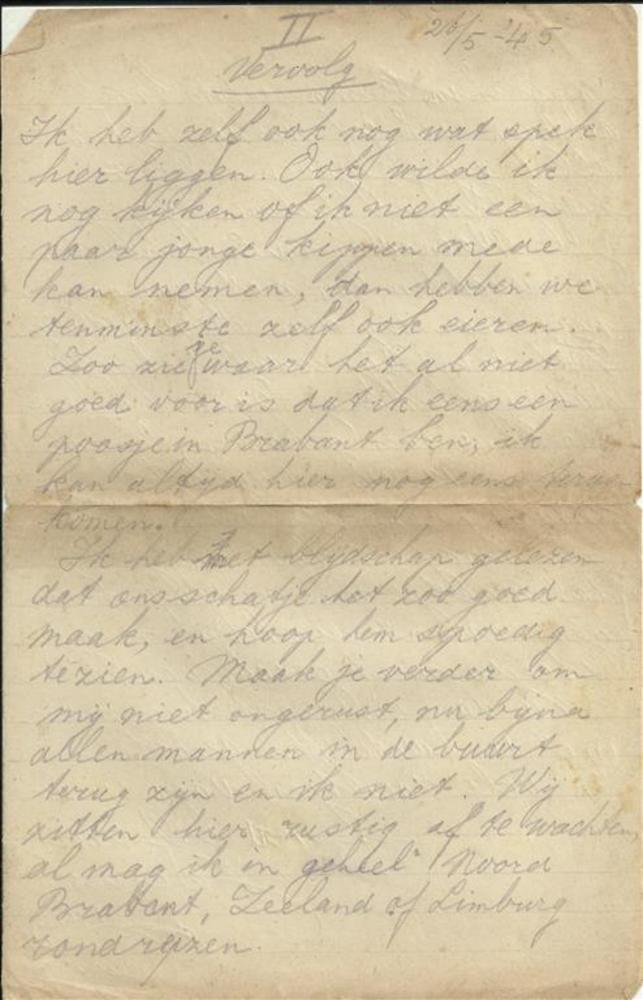 II
20/5 -'45
Vervolg
Ik heb zelf ook nog wat spek
hier liggen. Ook wilde ik
nog kijken of ik niet een
paar jonge kippen mede
kan nemen, dan hebben we
tenminste zelf ook eieren.
Zoo zie je waar het al niet
goed voor is dat ik eens een
poosje in Brabant ben, ik
kan altijd hier nog eens terug
komen.
Ik heb met blijdschap gelezen
dat ons schatje het zoo goed
maak, en hoop hem spoedig
te zien. Maak je verder om
mij niet ongerust, nu bijna
allen mannen in de buurt
terug zijn en ik niet. Wij
zitten hier rustig af te wachten,
al mag ik in geheel Noord
Brabant, Zeeland of Limburg
rondreizen.